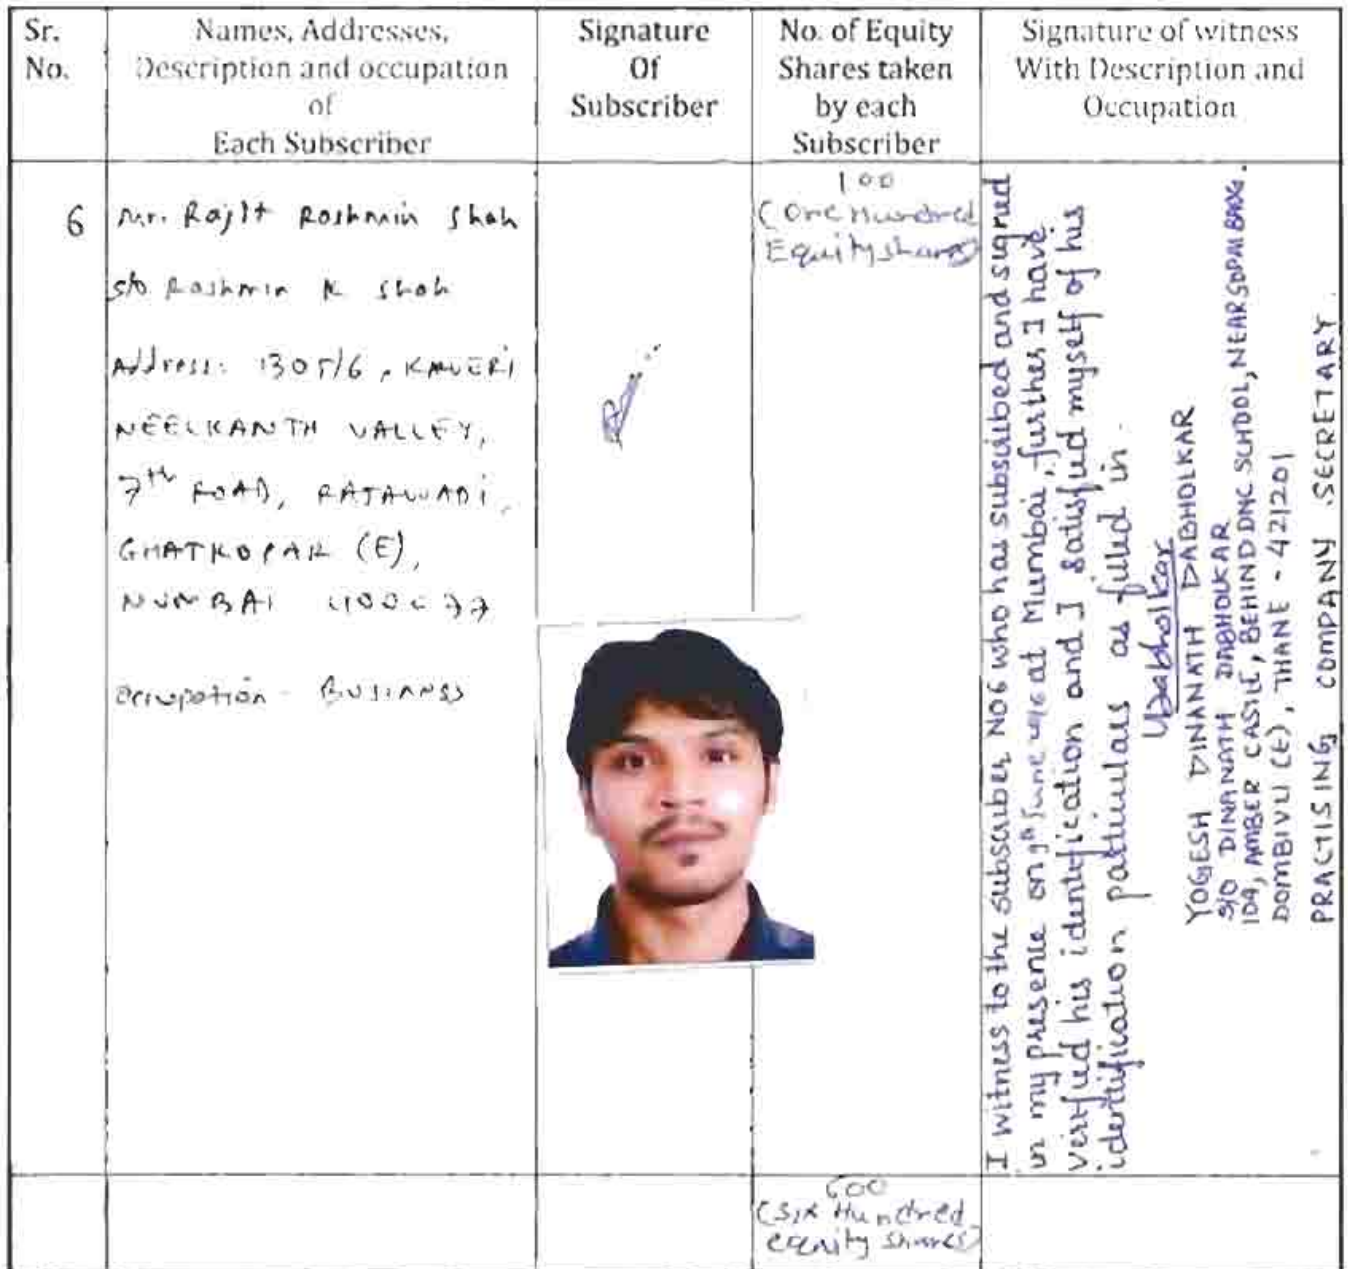 Sr. No.
Names, Addresses, Description and occupation of Each Subscriber
Signature Of Subscriber
No. of Equity Shares taken by each Subscriber
Signature of witness With Description and Occupation
6
Mr. Rajit Rashmin Shah
s/o Rashmin K Shah
Address: 1305/6, KAVERI
NEELKANTH VALLEY,
7th ROAD, RAJAWADI,
GHATKOPAR (E),
MUMBAI 400077
Occupation - BUSINESS
100
(One Hundred
Equity shares)
I witness to the subscriber NO6 who has subscribed and signed
in my presence on 9th June at Mumbai, further I have
verified his identification and I satisfied myself of his
identification particulars as filled in.
YDabholkar
YOGESH DINANATH DABHOLKAR
S/O DINANATH DABHOLKAR
104, AMBER CASTLE, BEHIND DNC SCHOOL, NEAR
DOMBIVLI (E), THANE - 421201
PRACTISING COMPANY SECRETARY.
600
(Six Hundred
equity shares)